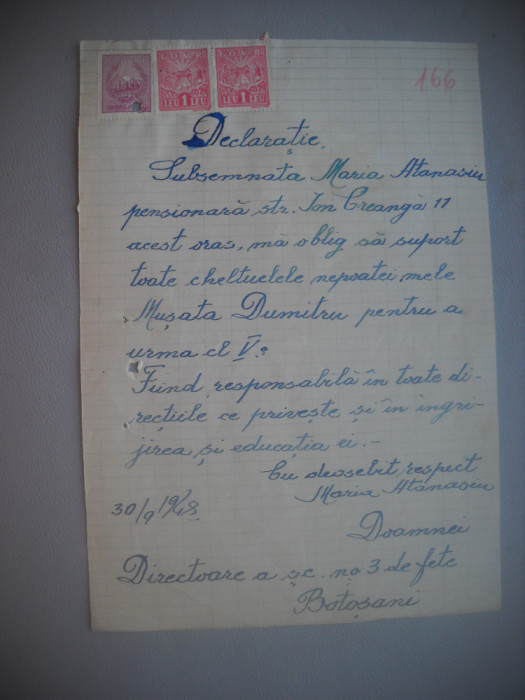 166
LEU 1 LEU
LEU 1 LEU
Declarație.
Subsemnata Maria Atanasiu
pensionară, str. Ion Creangă 11
acest oras, mă oblig să suport
toate cheltuelele nepoatei mele
Mușata Dumitru pentru a
urma cl V.a
Fiind responsabilă în toate di-
recțiile ce privește și în îngri-
jirea și educația ei.-
Cu deosebit respect
Maria Atanasiu
30/9 1948.
Doamnei
Directoare a șc. no 3 de fete
Botoșani